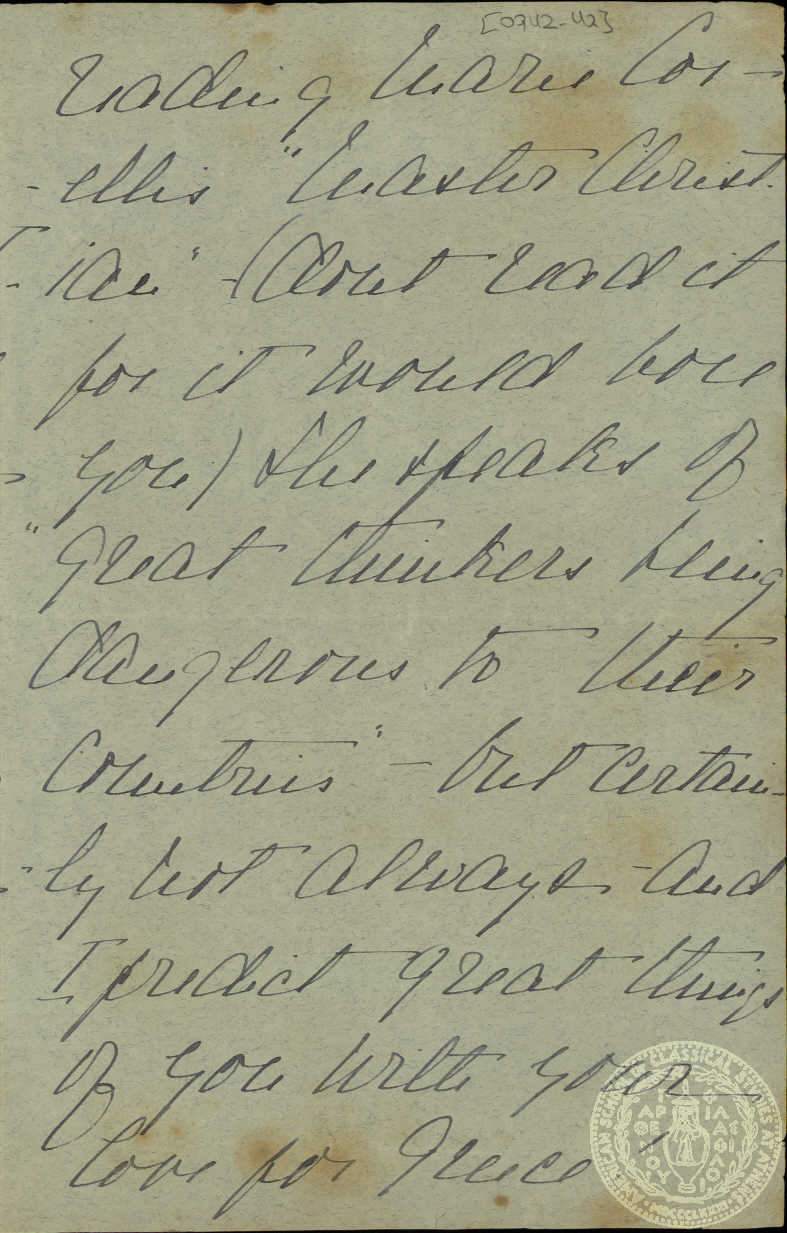 [0942-42]
reading Marie Cor-
-ellis "Master Christ-
-ian" - (dont read it
for it would bore
you) she speaks of
"great thinkers being
dangerous to their
Countries" - but certain-
-ly not always - and
I predict great things
of you with your
love for Greece
AMERICAN SCHOOL OF CLASSICAL STUDIES AT ATHENS
MDCCCLXXXI